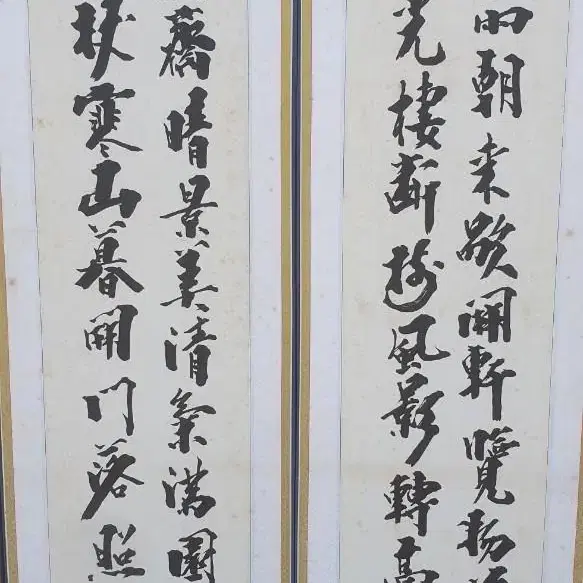 雨朝来欲開軒覽物
光棲斷樹風影轉高
齋晴景美清氣滿園
杖寒山暮開門落照